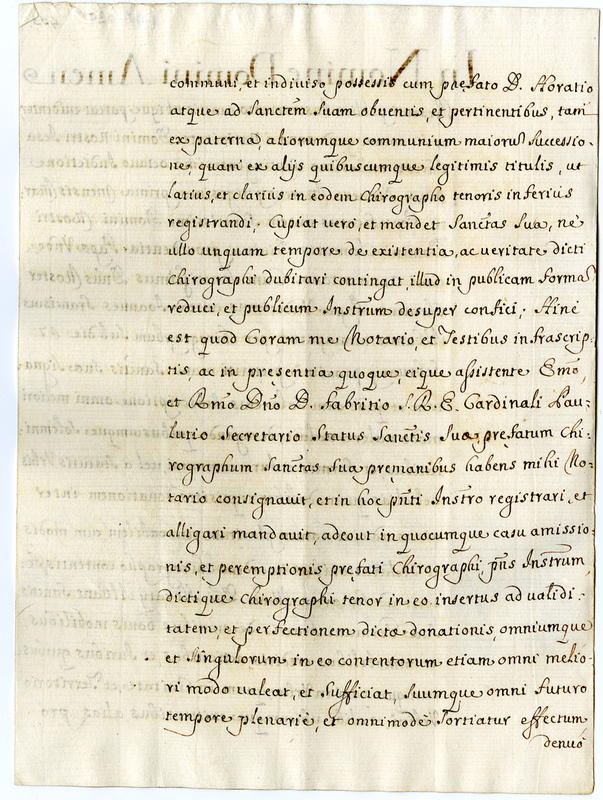 communi, et indiviso possessis cum præfato D. Horatio
atque ad Sanctem Suam obventis, et pertinentibus, tam
ex paterna, aliorumque communium maiorũ successio-
ne, quam ex alijs quibuscumque legitimis titulis, ut
latius, et clarius in eodem Chirographo tenoris inferius
registrandi. Cupiat verò, et mandet Sanctas Sua, nè
ullo unquam tempore de existentia, ac veritate dicti
Chirographi dubitari contingat, illud in publicam formã
reduci, et publicum Instrum desuper confici. Hinc
est quod Coram me Notario, et Testibus infrascrip-
tis, ac in presentia quoque, eique assistente Emo,
et Rmo Dno D. Fabritio S. R. E. Cardinali Pau-
lutio Secretario Status Sanctis Suæ, prefatum Chi-
rographum Sanctas Sua premanibus habens mihi No-
tario consignavit, et in hoc pnti Instro registrari, et
alligari mandavit, adeout in quocumque casu amissio-
nis, et peremptionis prefati Chirographi, pns Instrum,
dictique Chirographi tenor in eo insertus ad validi-
tatem, et perfectionem dictæ donationis, omniumque
et singulorum in eo contentorum etiam omni melio-
ri modo valeat, et sufficiat, suumque omni futuro
tempore plenariè, et omnimodè sortiatur effectum
denuò